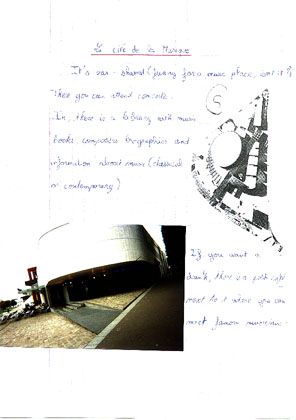 La cité de la Musique
It's ear-shaped (funny for a music place, isn't it?)
There you can attend concerts.
In, there is a library with music
books, composers biographies and
information about music (classical
or contemporary)
If you want a
drink, there is a posh café
next to it where you can
meet famous musicians.